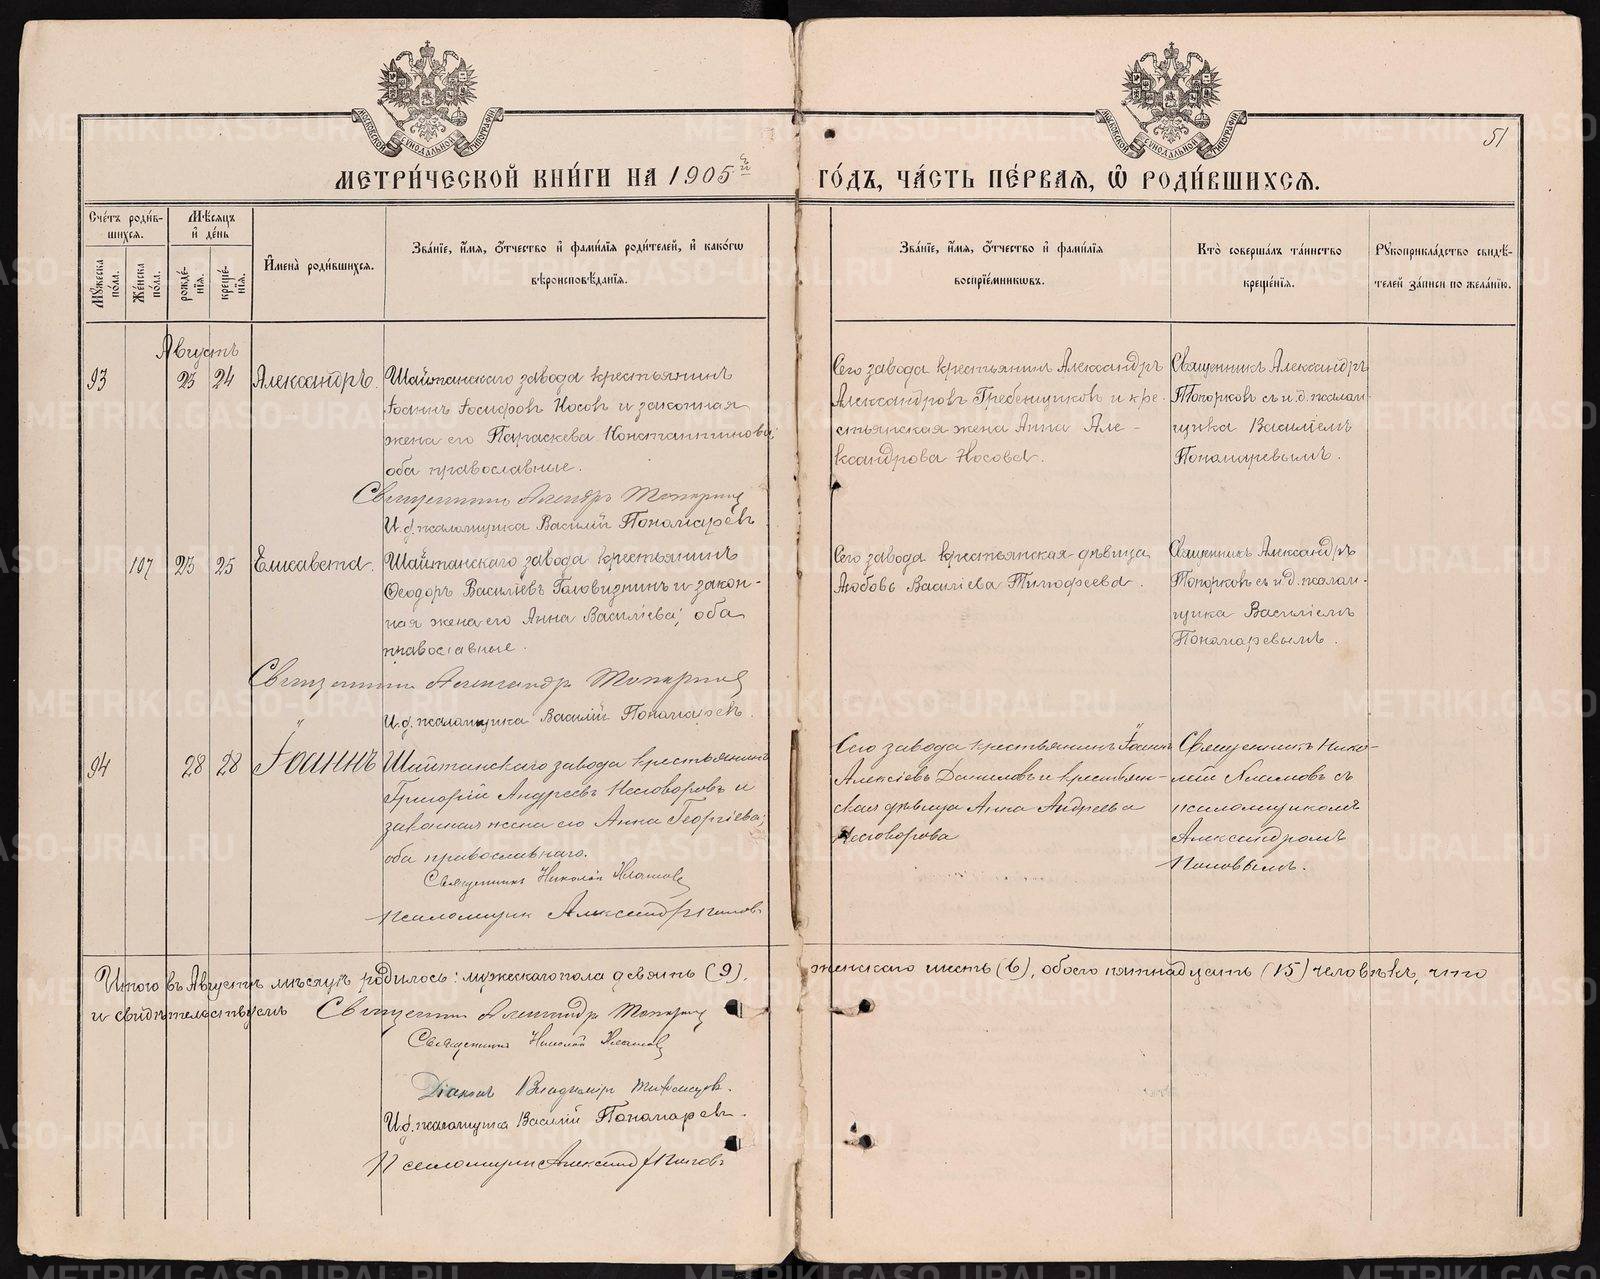 51
МЕТРИ́ЧЕСКОЙ КНИ́ГИ НА 1905й ГО́ДЪ, ЧА́СТЬ ПЕ́РВАЯ, Ѡ РОДИ́ВШИХСЯ.
Сче́тъ роди́в-
шихся.
Мѣ́сяцъ
и́ де́нь
Мꙋ́жеска по́ла.
Же́нска по́ла.
рожде́-
нїя.
креще́-
нїя.
И҆мена̀ роди́вшихся.
Зва́нїе, и҆́мя, ѻ҆́тчество и҆ фами́лїя роди́телей, и҆ како́гѡ
вѣроисповѣ́данїя.
Зва́нїе, и҆́мя, ѻ҆́тчество и҆ фами́лїя
воспрїе́мникѡвъ.
Кто̀ соверша́лъ та́инство
креще́нїя.
Рꙋкоприкла́дство свидѣ́-
телей за́писи по жела́нїю.
Августъ
93 23 24 Александръ. Шайтанскаго завода крестьянинъ
Іоаннъ Іосифовъ Носовъ и законная
жена его Параскева Константинова;
оба православные.
Священникъ Александръ Топорковъ
И.д. псаломщика Василій Пономаревъ
Сего завода крестьянинъ Александръ
Александровъ Гребенщиковъ и кре-
стьянская жена Анна Але-
ксандрова Носова.
Священникъ Александръ
Топорковъ съ и.д. псалом-
щика Василіемъ
Пономаревымъ.
107 23 25 Елисавета. Шайтанскаго завода крестьянинъ
Ѳеодоръ Василіевъ Головизнинъ и закон-
ная жена его Анна Василіева; оба
православные.
Священникъ Александръ Топорковъ
И.д. псаломщика Василій Пономаревъ.
Сего завода крестьянская дѣвица
Любовь Василіева Тимофеева.
Священникъ Александръ
Топорковъ съ и.д. псалом-
щика Василіемъ
Пономаревымъ.
94 28 28 Іоаннъ Шайтанскаго завода крестьянинъ
Григорій Андреевъ Несговоровъ и
законная жена его Анна Георгіева;
оба православнаго.
Священникъ Николай
псаломщик Александръ Поповъ
Сего завода крестьянинъ Іоаннъ
Алексіевъ Даниловъ и крестьян-
ская дѣвица Анна Андреева
Несговорова
Священникъ Нико-
лай съ
псаломщикомъ
Александромъ
Поповымъ.
Итого въ Августѣ мѣсяцѣ родилось: мужескаго пола девять (9), женскаго шесть (6), обоего пятнадцать (15) человѣкъ, что
и свидѣтельствуемъ Священникъ Александръ Топорковъ
Священникъ Николай
Діаконъ Владиміръ
И.д. псаломщика Василій Пономаревъ.
Псаломщик Александръ Поповъ
METRIKI.GASO-URAL.RU